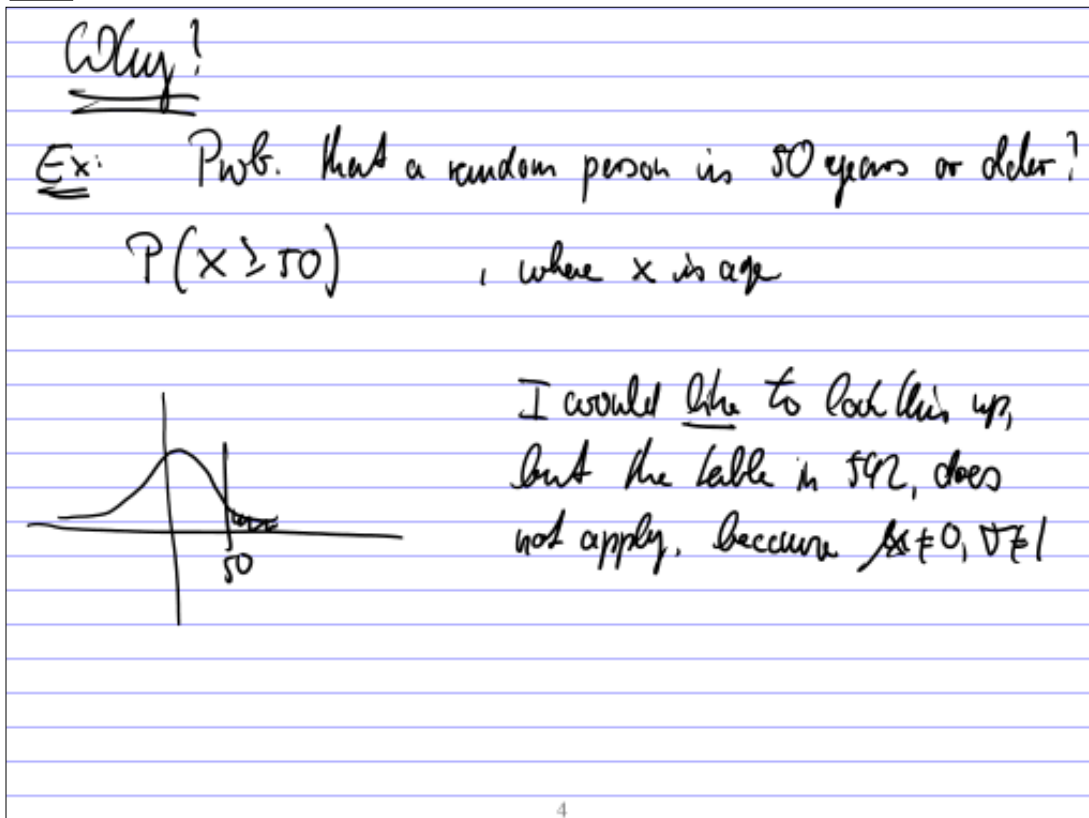 Why?
Ex: Prob. that a random person is 50 years or older?
P(X ≥ 50) , where x is age
I would like to look this up,
but the table in 542, does
not apply, because μ ≠ 0, σ ≠ 1
50
4